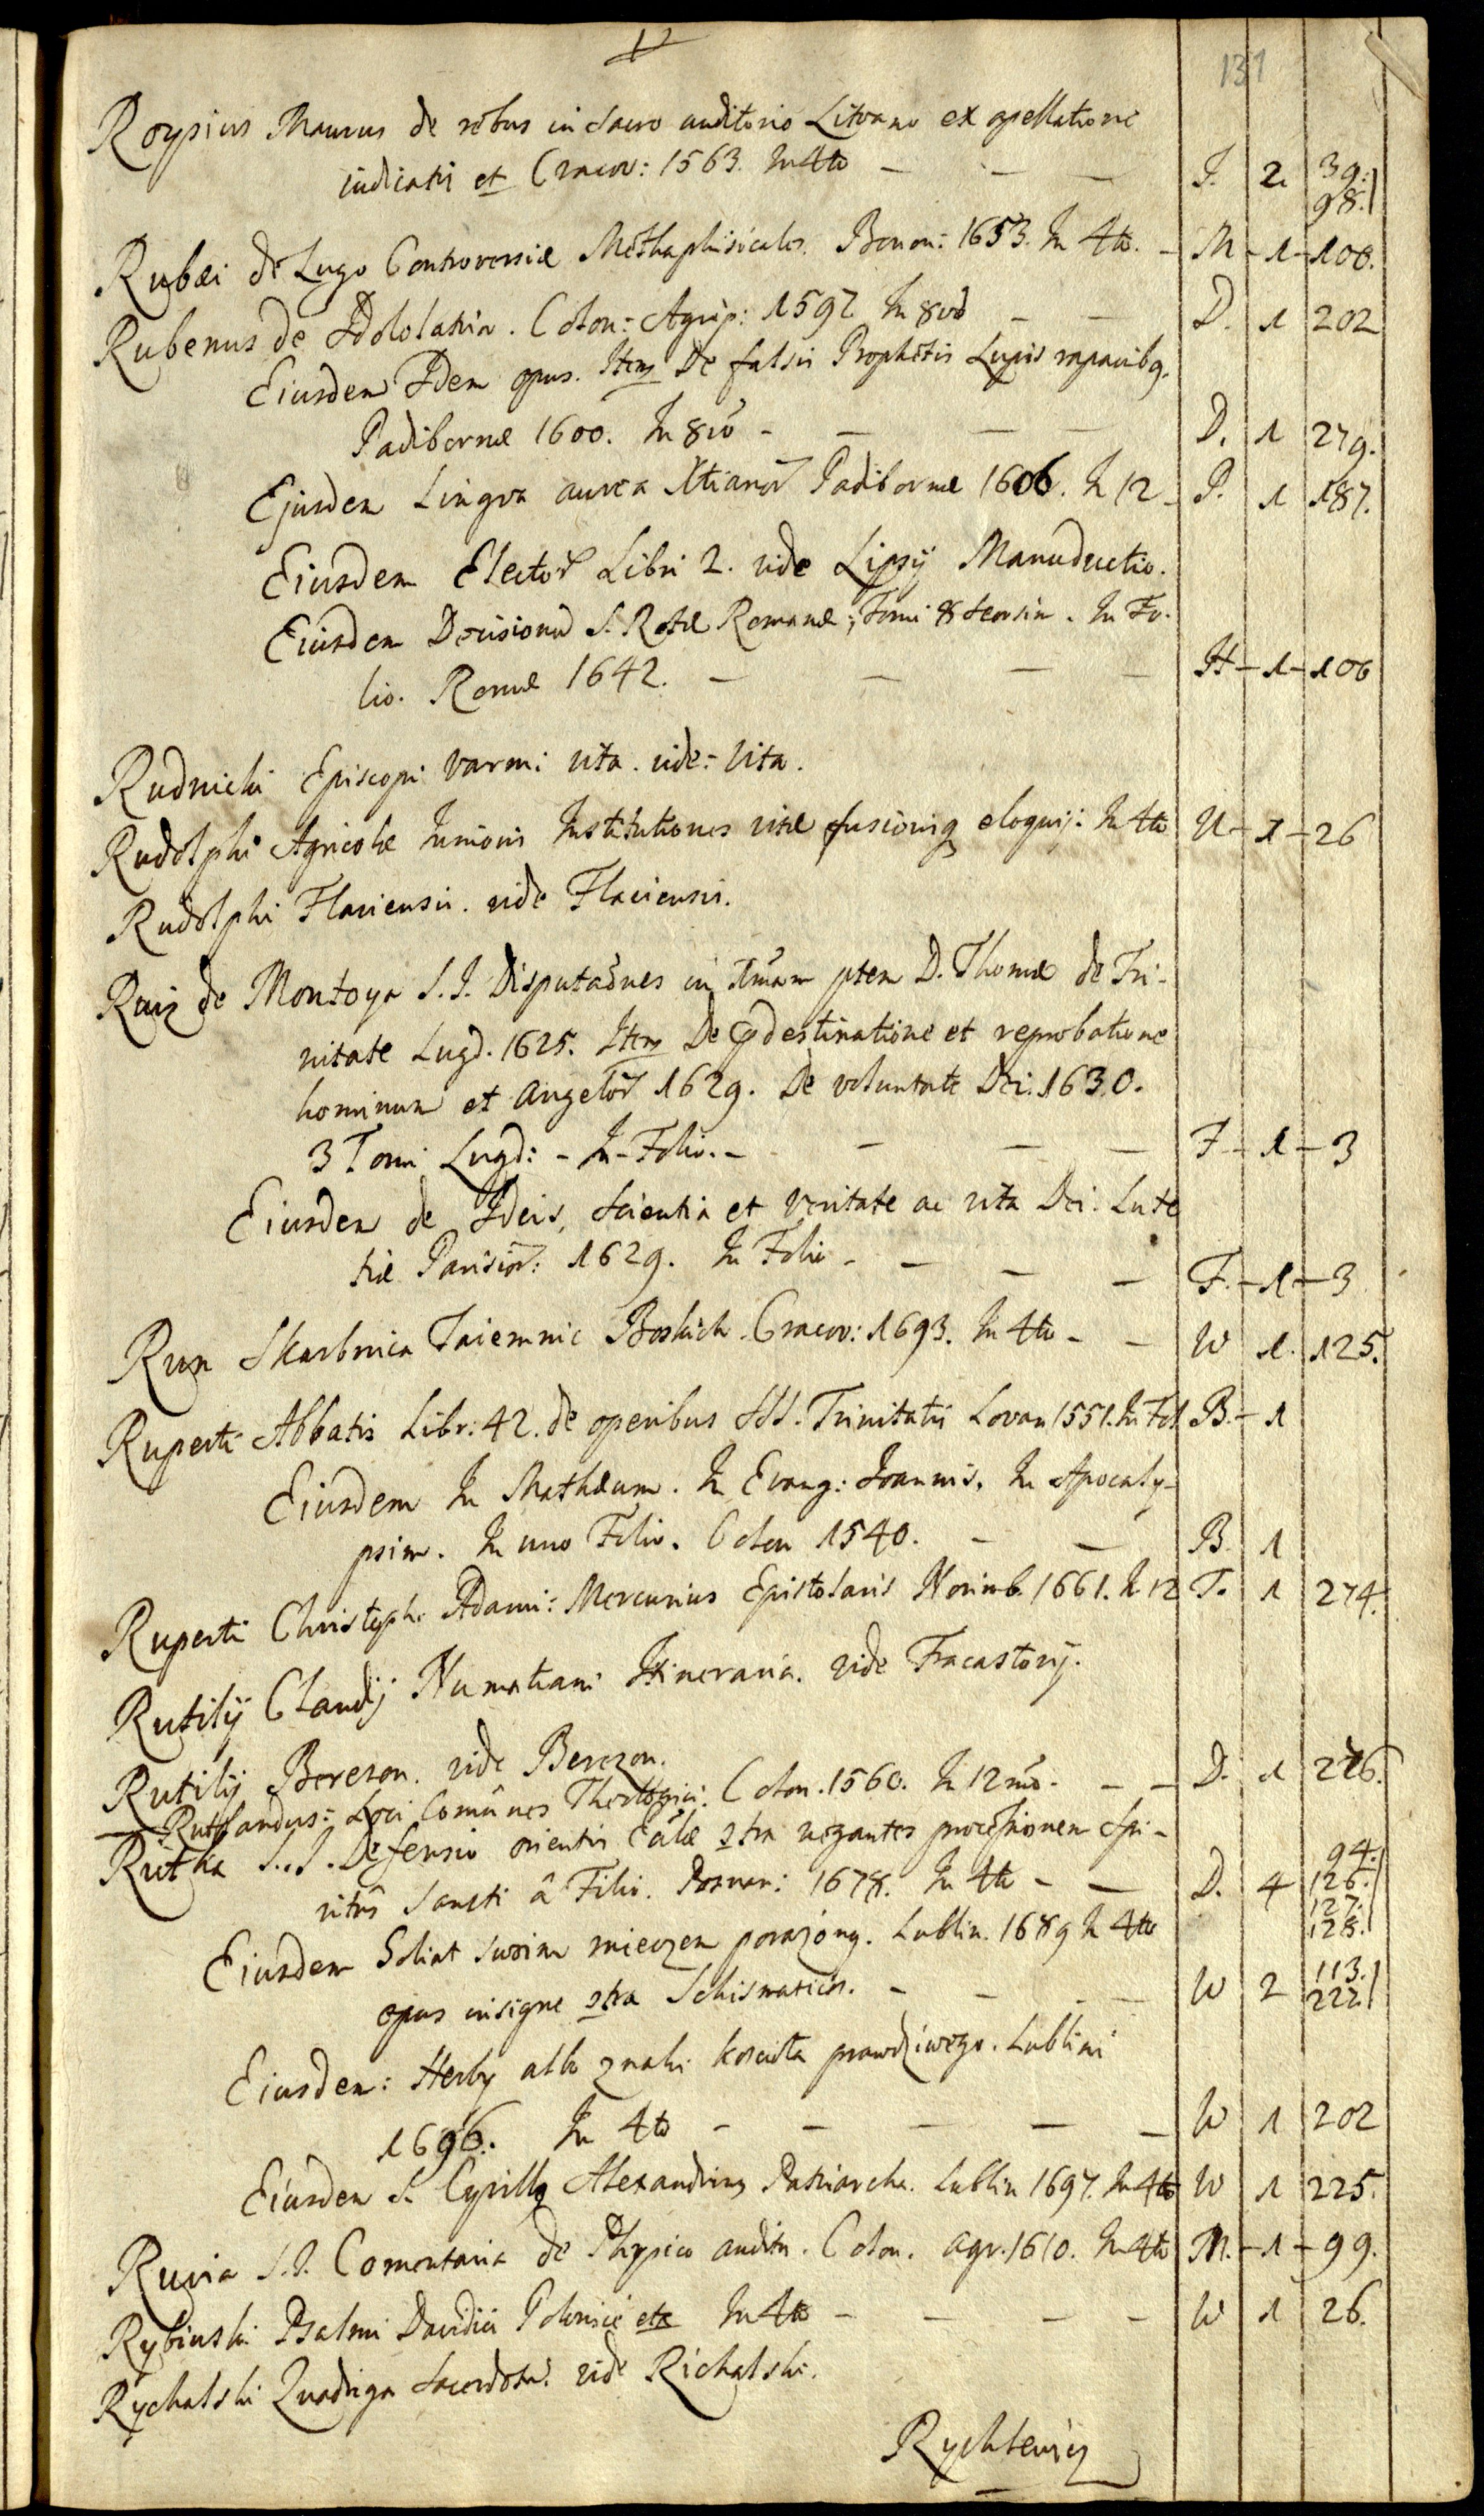 131
Roysius Maurus de rebus in Sacro auditorio Litvano ex apellatione
iudicatis et Cracov: 1563. In 4to — — — J. 2. 39. 98.
Rubæi de Lugo Controversiæ Methaphisicales. Bonon: 1653. In 4to. - M - 1 - 100.
Rubenus de Idololatria. Colon: Agrip: 1597 In 8vo — — D. 1 202
Eiusdem Idem opus. Item De falsis Prophetis Lupis rapacibq.
Padibornæ 1600. In 8vo - — — — D. 1 279.
Ejusdem Lingva aurea Xtianor Padibornæ 1606. In 12 - P. 1 187.
Eiusdem Elector Libri 2. vide Lipsij Manuductio.
Eiusdem Decisionu S. Rotæ Romanæ; Tomi 8 seorsim. In Fo-
lio. Romæ 1642. — — — — H - 1 - 106
Rudnicki Episcopi varmi: vita. vide: Vita.
Rudolphi Agricolæ Junioris Institutiones vitæ fusiorisq eloquij: In 4to U - 1 - 26
Rudolphi Flaviensis. vide Flaviensis.
Ruiz de Montoya S.J. Disputaones in 1mam ptem D. Thomæ de Tri-
nitate Lugd. 1625. Item De Prædestinatione et reprobatione
hominum et angelor 1629. De voluntate Dei. 1630.
3 Tomi Lugd: - In - Folio. - — — — F - 1 - 3
Eiusdem de Ideis, Scientia et Veritate ac vita Dei: Lute
tiæ Parisior: 1629. In Folio - — — — F. - 1 - 3
Run Skarbnica Taiemnic Boskich. Cracov: 1693. In 4to - — W 1. 125.
Ruperti Abbatis Libr: 42. de operibus SSS. Trinitatis Lovan 1551. In Fol B. - 1
Eiusdem In Mathæum. In Evang: Joannis. In Apocaly-
psim. In uno Folio. Colon 1540. — — B. 1
Ruperti Christoph: Adami: Mercurius Epistolaris Norimb. 1661. In 12 T. 1 274.
Rutilij Claudij Numatiani Itineraria. vide Fracastorij.
Rutilij Berezon. vide Berezon.
Rutlandus: Loci Comunes Theologici: Colon. 1560. In 12mo - — — D. 1 226.
Rutka S.J. Defensio orientis Ecælæ 2tra negantes processionem Spi-
ritus Sancti â Filio. Posnan: 1678. In 4to - — D. 4 94. 126. 127. 128.
Eiusdem Goliat swoim mieczem porażony. Lublin. 1689 In 4to
opus insigne 2tra Schismaticos. - — — W 2 113. 222.
Eiusdem: Herby albo znaki kosciła prawdziwego. Lublini
1696. In 4to — — — — — W 1 202
Eiusdem S. Cyrillq Alexandrinq Patriarcha. Lublin 1697. In 4to W 1 225.
Ruvia S.J. Comentaria de Physico auditu. Colon. agr. 1610. In 4to M. - 1 - 99.
Rybinski Psalmi Davidici Polonice etc In 4to — — — — W 1 26.
Rychalski Quadriga Sacerdotu. vide Richalski.
Rychlewicz